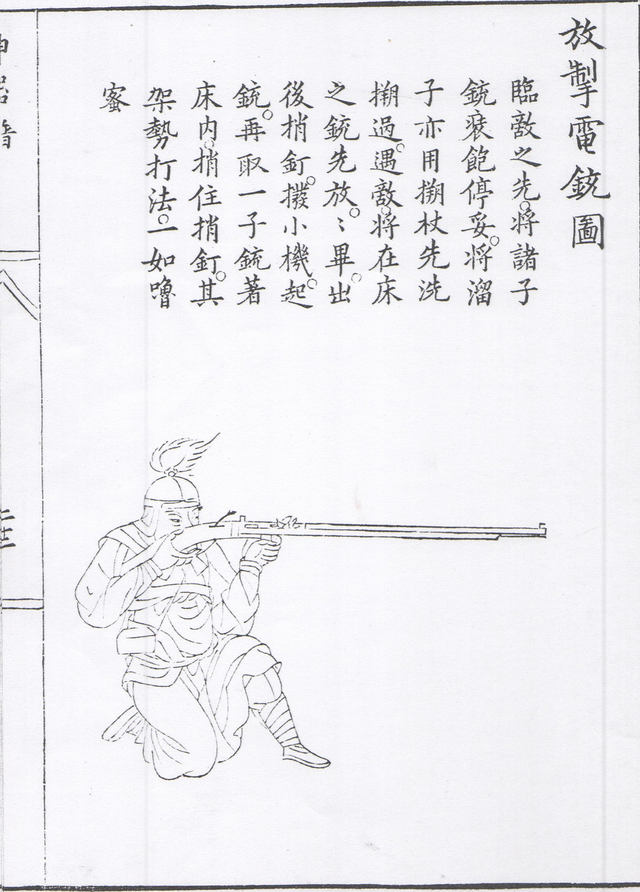 放掣電銃圖
臨敵之先。將諸子
銃裝飽停妥。將溜
子亦用搠杖先洗
搠過。遇敵。將在床
之銃先放。〻畢。出
後梢釘。撥小機。起
銃。再取一子銃著
床內。梢住梢釘。其
架勢打法。一如嚕
蜜
神器譜